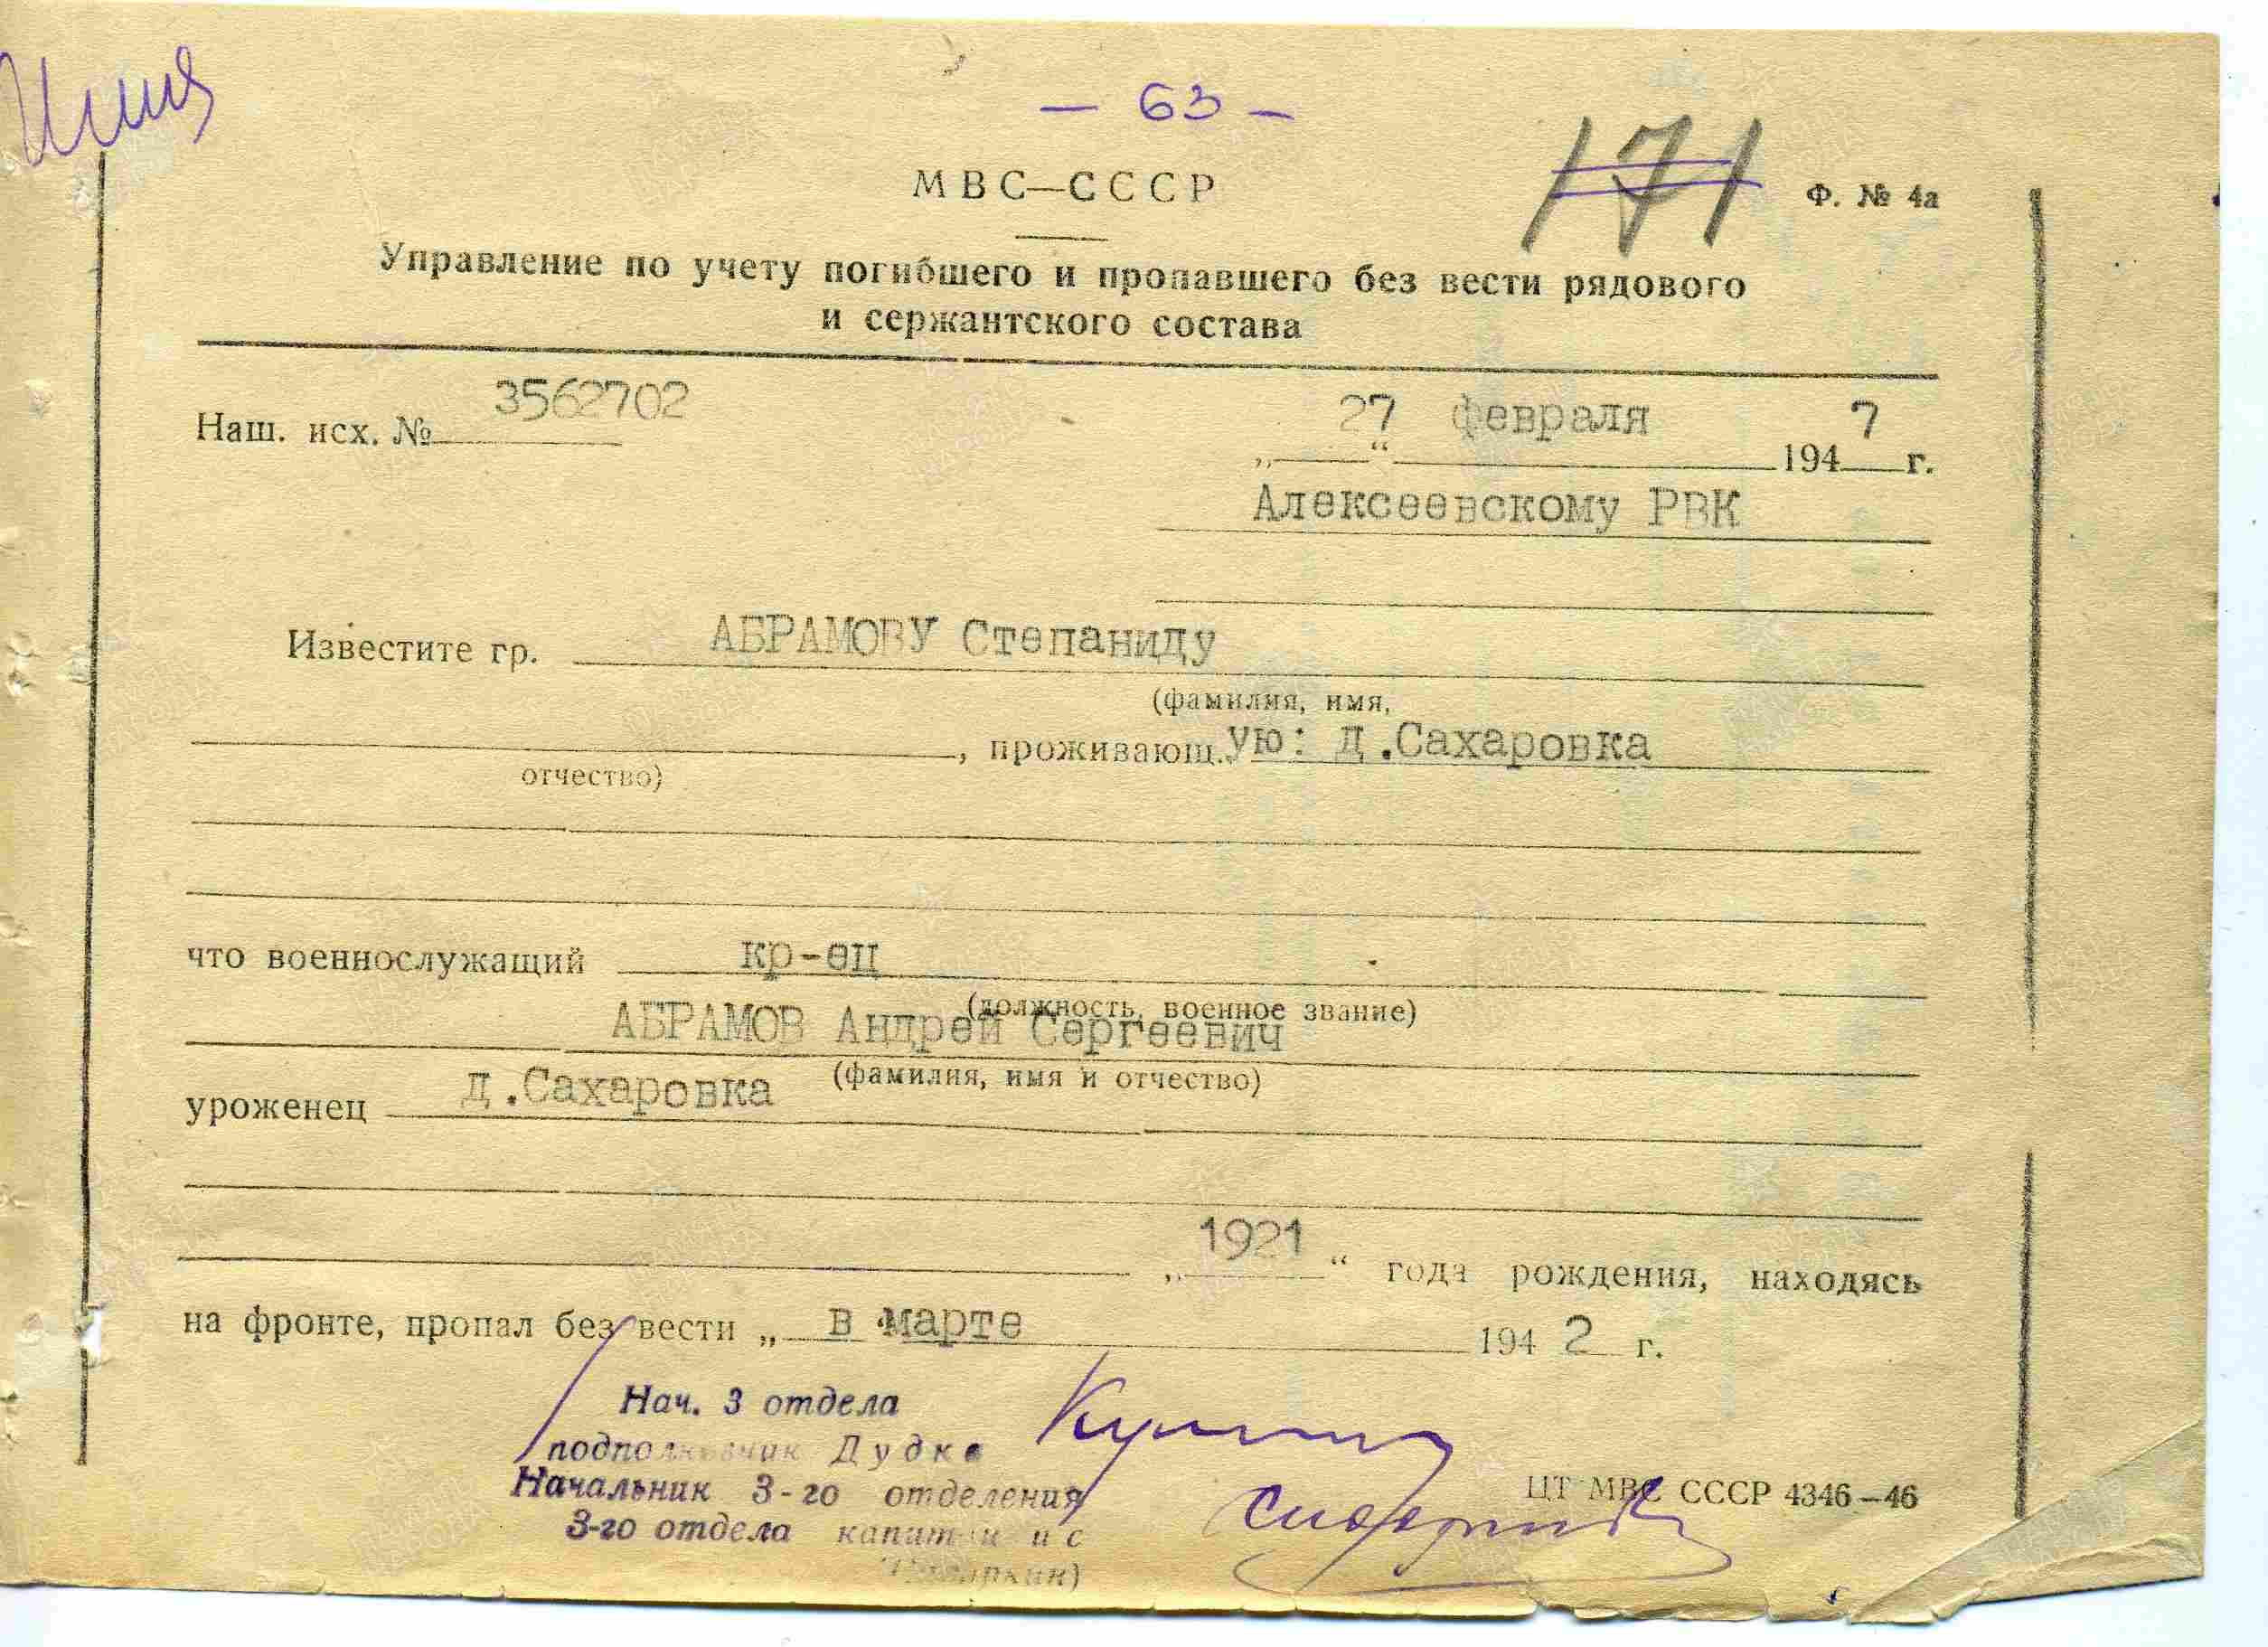 — 63 —
171
МВС—СССР
Ф. № 4а
Управление по учету погибшего и пропавшего без вести рядового
и сержантского состава
Наш. исх. № 3562702
„27“ февраля 1947 г.
Алексеевскому РВК
Известите гр. АБРАМОВУ Степаниду
(фамилия, имя,
, проживающ.ую: д.Сахаровка
отчество)
что военнослужащий кр-ец
(должность, военное звание)
АБРАМОВ Андрей Сергеевич
(фамилия, имя и отчество)
уроженец д.Сахаровка
„1921“ года рождения, находясь
на фронте, пропал без вести „ в марте 1942 г.
Нач. 3 отдела
подполковник Дудко
Начальник 3-го отделения
3-го отдела капитан и/с
ЦТ МВС СССР 4346—46